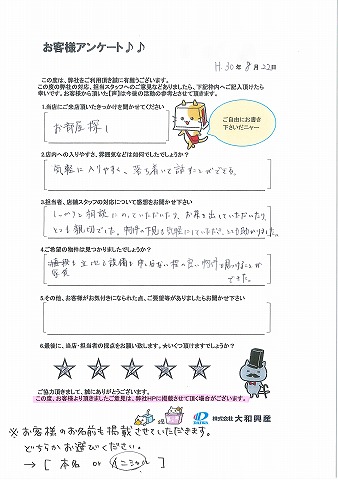 お客様アンケート♪♪
H.30年8月22日
この度は、弊社をご利用頂き誠に有難うございます。
この度の弊社の対応、担当スタッフへのご意見などありましたら、下記枠内へご記入頂けたら
幸いです。お客様から頂いた【声】は今後の活動の参考とさせて頂きます。
1.当店にご来店頂いたきっかけを聞かせてください
お部屋探し
ご自由にお書き
下さいだニャー
2.店内への入りやすさ、雰囲気などは如何でしたでしょうか?
気軽に入りやすく、落ち着いて話すことができる。
3.担当者、店舗スタッフの対応について感想をお聞かせ下さい
しっかりと相談にのっていただいたり、お茶を出していただいたり、
とても親切でした。物件の下見も気軽にしていただき、とても助かりました。
4.ご希望の物件は見つかりましたでしょうか?
価格も立地も設備も申し分ない程の良い物件を見つけることが
できた。
家賃
5.その他、お客様がお気付きになられた点、ご要望等がありましたらお聞かせ下さい
6.最後に、当店・担当者の採点をお願い致します。★いくつ頂けますでしょうか?
ご協力頂きまして、誠にありがとうございます。
この度、お客様より頂きましたご意見は、弊社HPに掲載させて頂く場合がございます。
DAIWA
株式会社 大和興産
※お客様のお名前も掲載させていただきます。
どちらかお選びください。
→[ 本名 or イニシャル ]